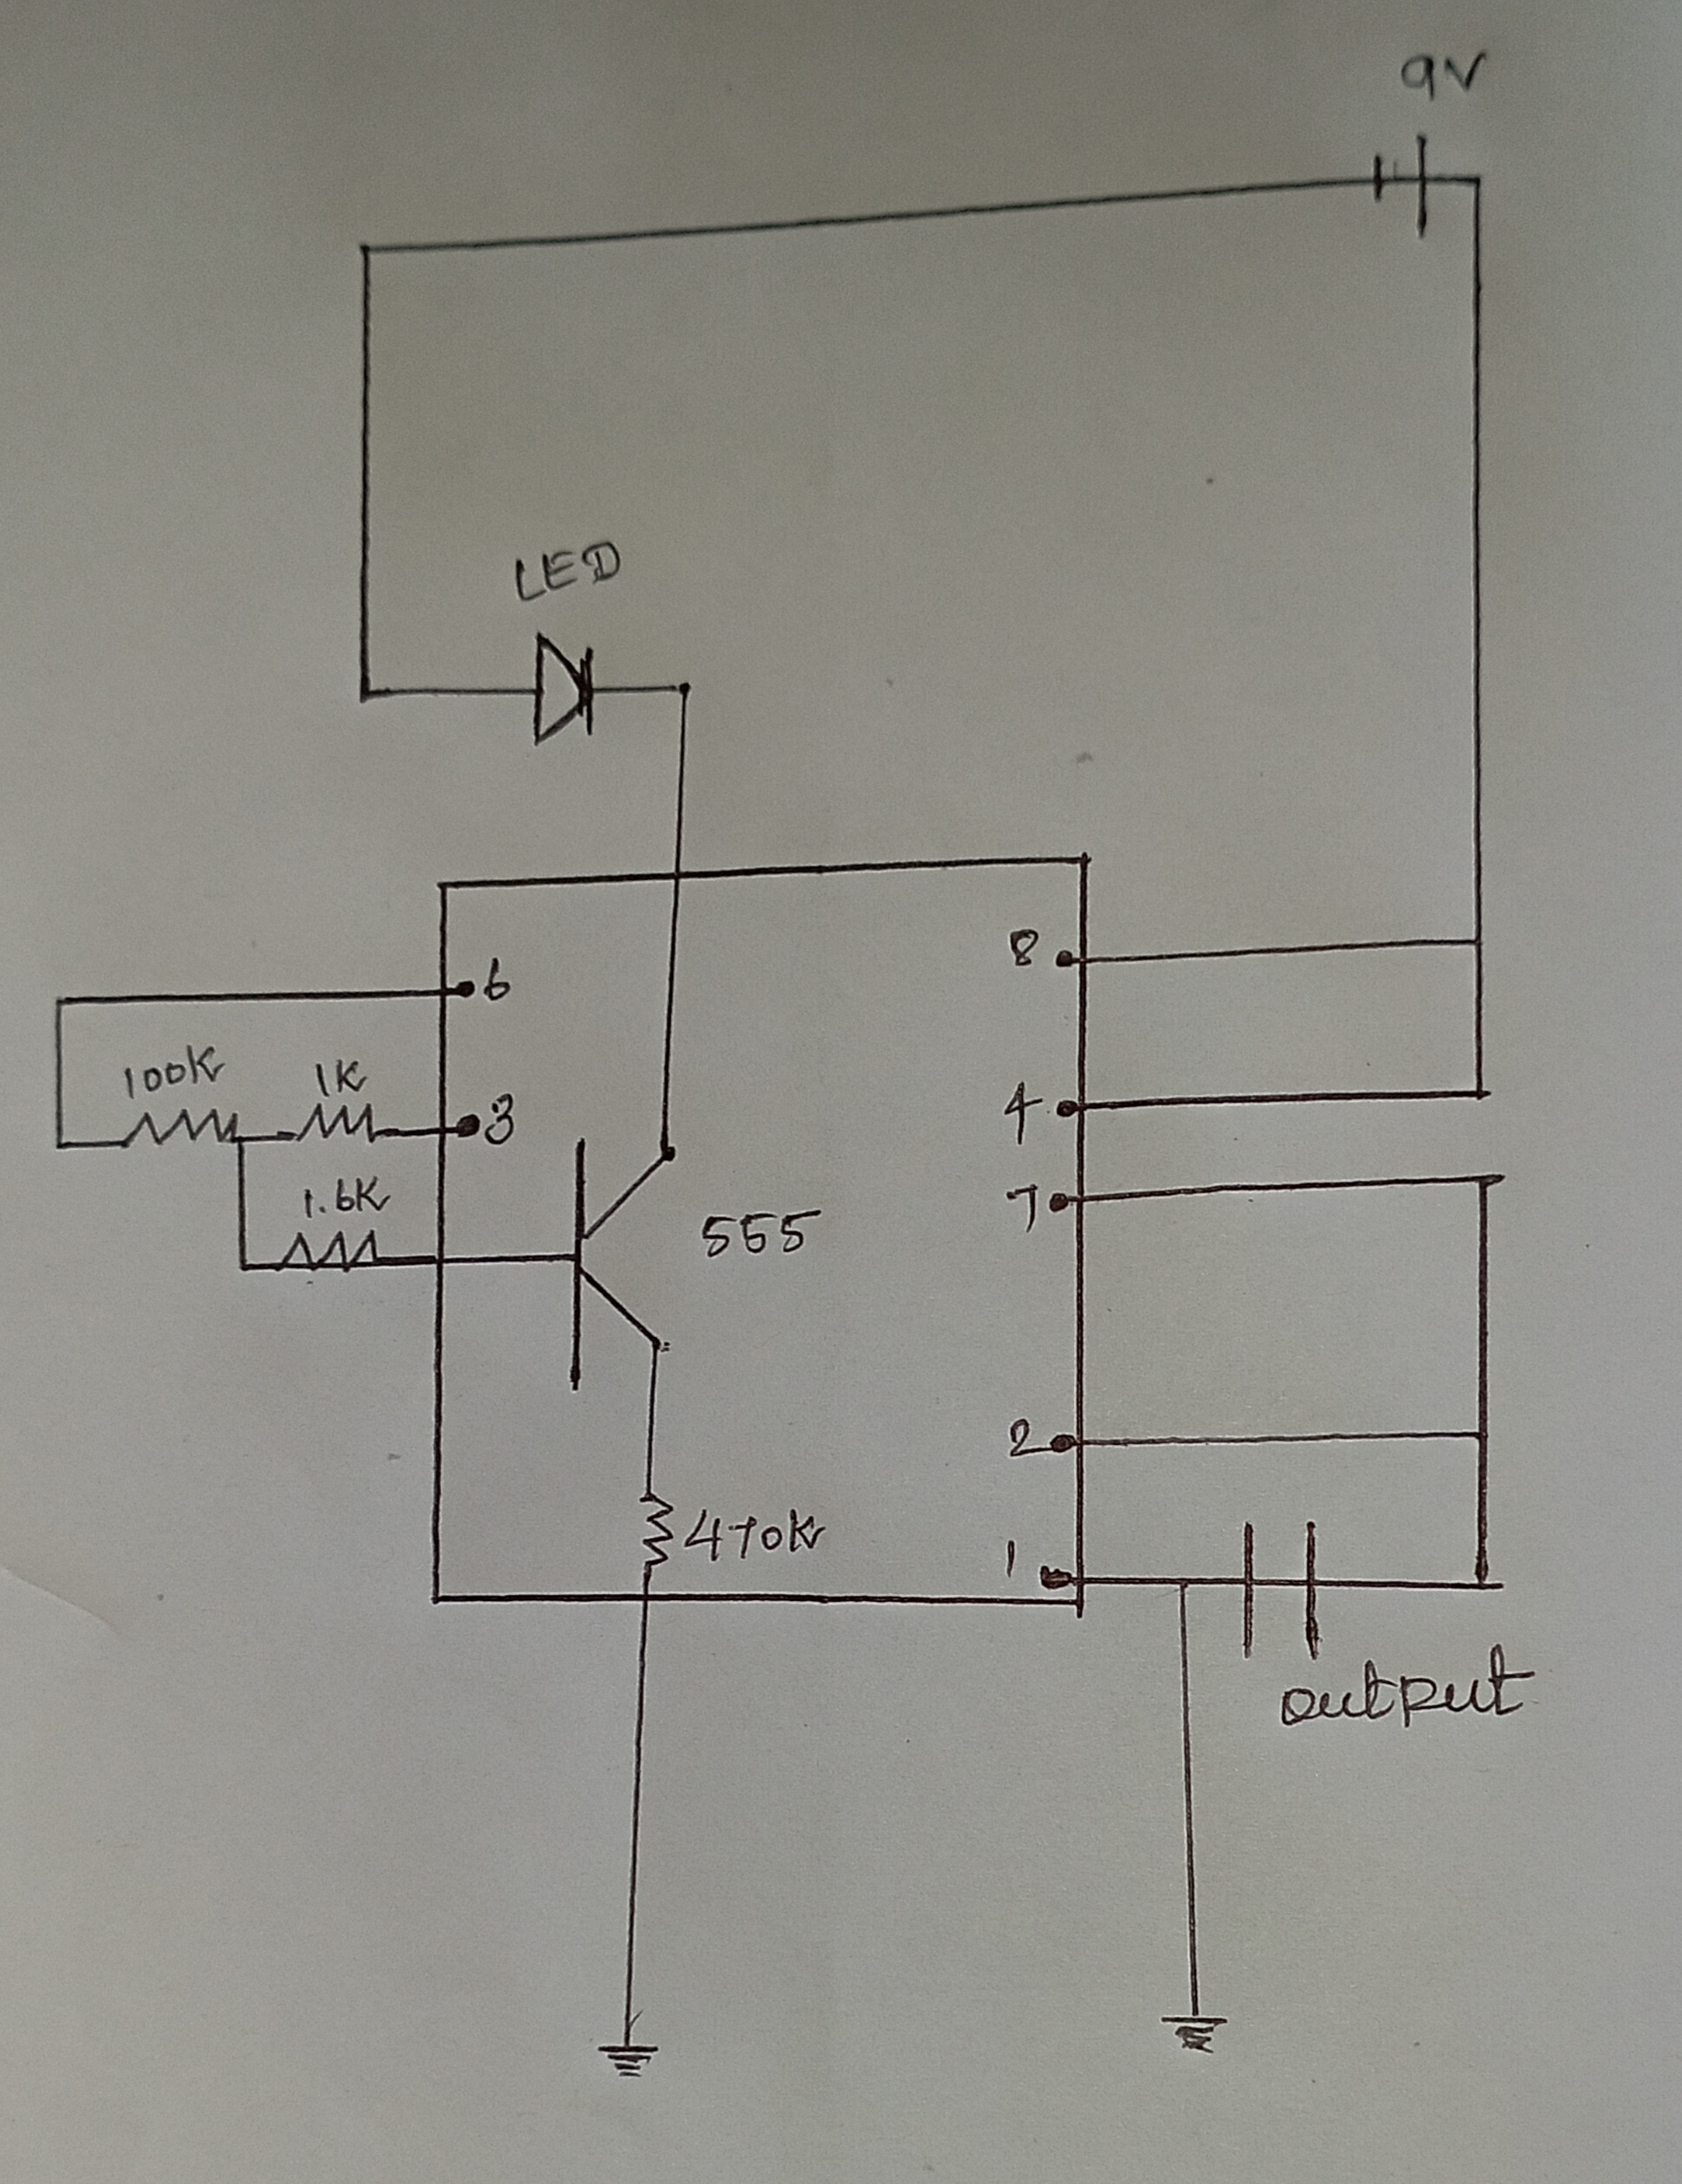 9V
LED
8
6
100K
1K
4
3
1.6K
7
555
2
470K
1
output